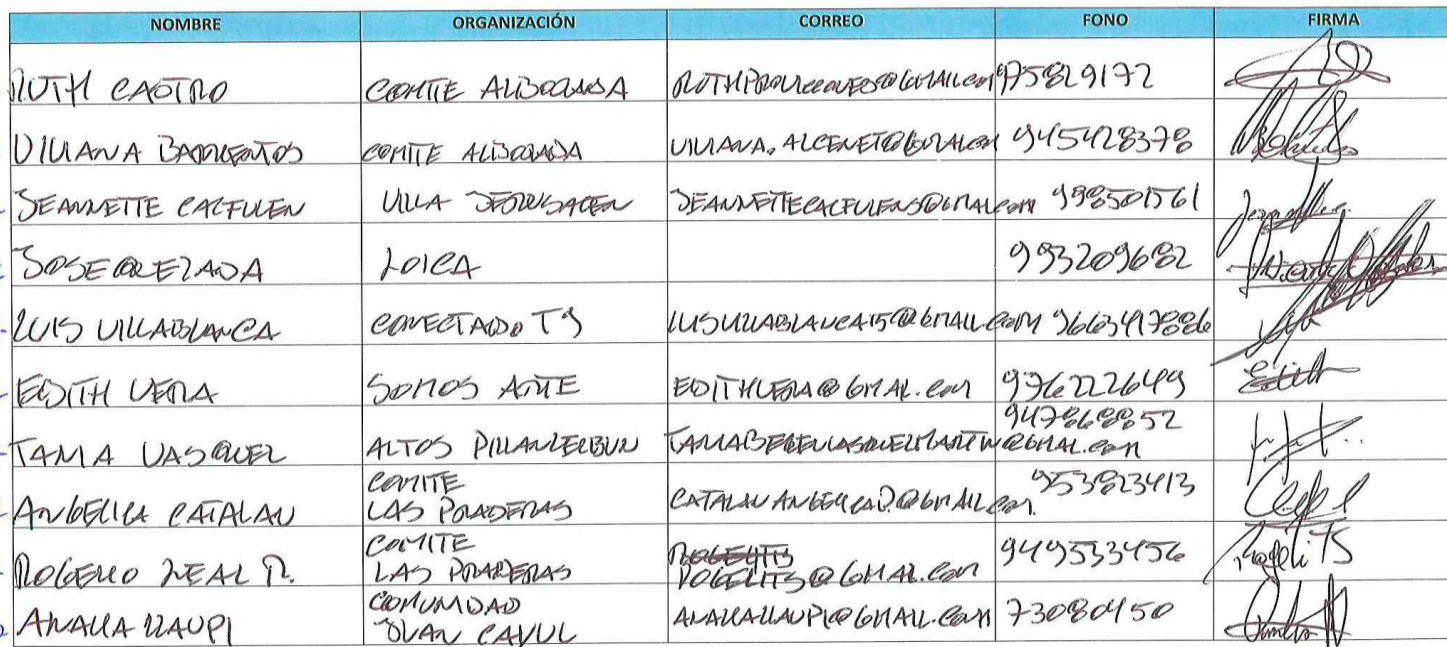 NOMBRE ORGANIZACIÓN CORREO FONO FIRMA
RUTH CASTRO COMITE ALBORADA 975829172
VIVIANA BARRIENTOS COMITE ALBORADA 945428378
JEANNETTE CALFULEN VILLA JEANNETTECALFULENS@GMAIL.COM 998501561
JOSE QUEZADA LOICA 993209682
LUIS VILLABLANCA CONECTADO TS LUISVILLABLANCA15@GMAIL.COM
EDITH VERA SOMOS ARTE EDITHVERA@GMAIL.COM 976222649
Edith
TANIA VASQUEZ ALTOS PILLANLELBUN 947868852
ANGELICA CATALAN COMITE LAS PRADERAS CATALANANGELICAD.@GMAIL.COM. 953823413
ROGELIO LEAL R. COMITE LAS PRADERAS ROGELITS@GMAIL.COM 949533456
Rogeli TS
ANALLA LLAUPI COMUNIDAD JUAN CAYUL ANALLALLAUPI@GMAIL.COM 73080450